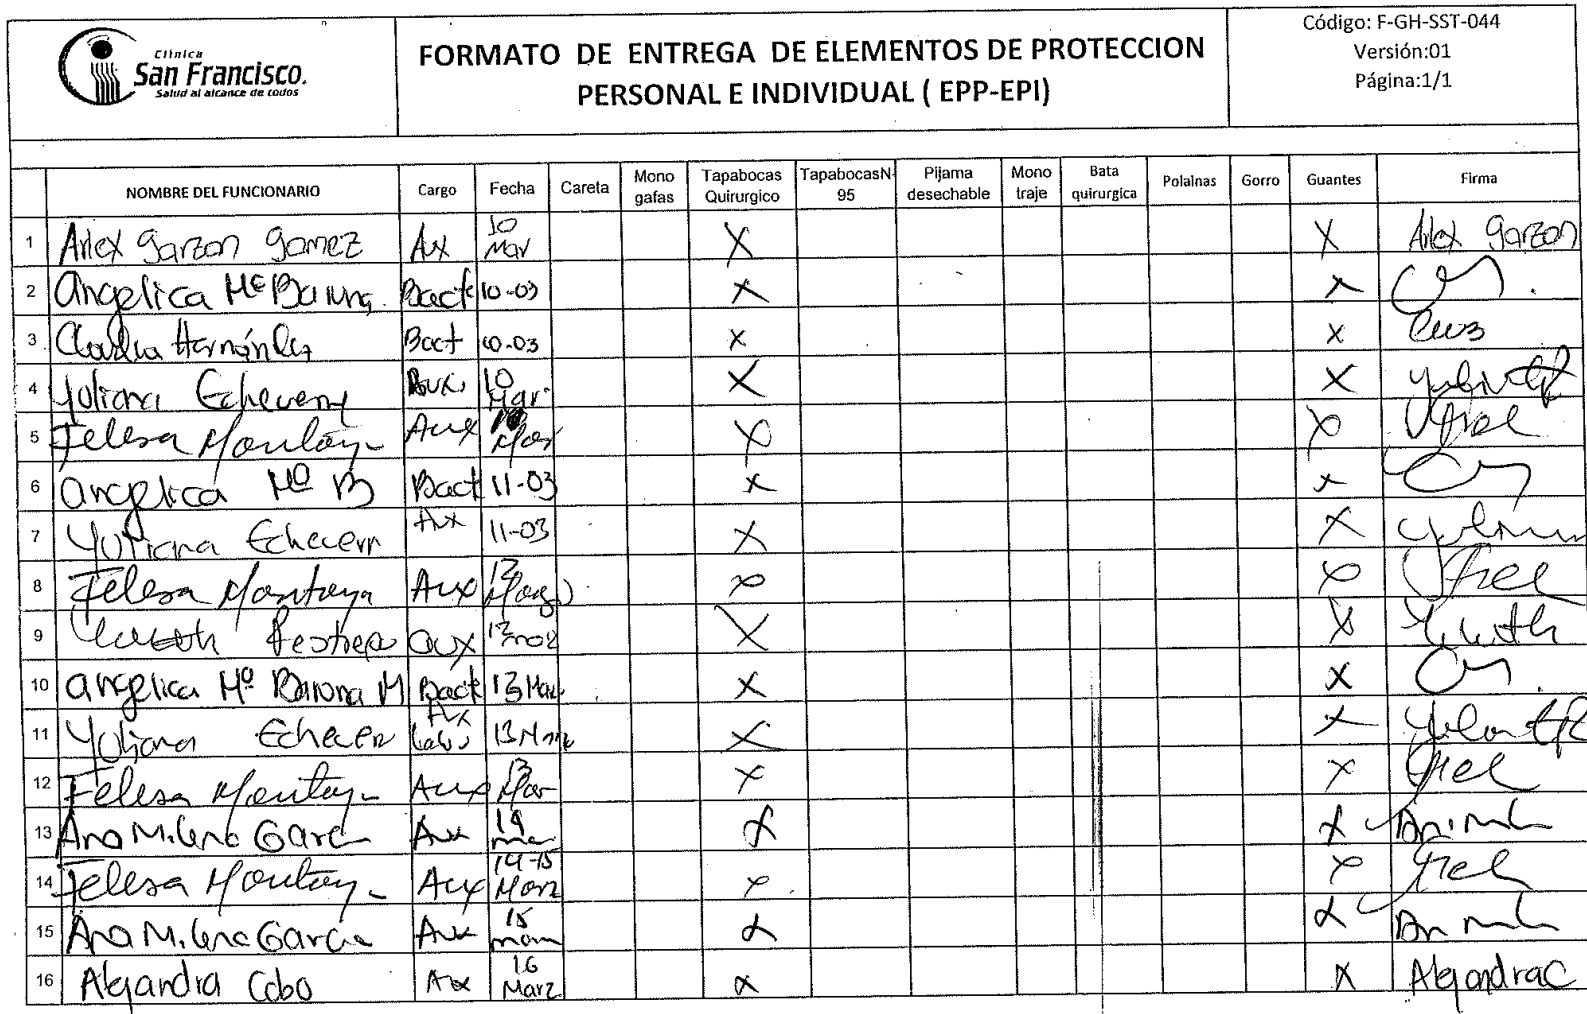 Clínica
San Francisco.
Salud al alcance de todos
FORMATO DE ENTREGA DE ELEMENTOS DE PROTECCION
PERSONAL E INDIVIDUAL ( EPP-EPI)
Código: F-GH-SST-044
Versión:01
Página:1/1
NOMBRE DEL FUNCIONARIO Cargo Fecha Careta Mono gafas Tapabocas Quirurgico TapabocasN-95 Pijama desechable Mono traje Bata quirurgica Polainas Gorro Guantes Firma
1 Arlex Garzon Gomez Aux 10 Mar X X Arlex Garzon
2 Angelica Mª Barona Bact 10-03 X X
3 Claudia Hernández Bact 10-03 X X
4 Yuliana Echeverry Aux. 10 Mar. X X
5 Felesa Montoya Aux 10 Mar X X
6 Angelica Mª B Bact 11-03 X X
7 Yuliana Echeverr Aux 11-03 X X
8 Felesa Montoya Aux X X
9 Restrepo aux X X
10 Angelica Mª Barona M Bact 13 Mar. X X
11 Yuliana Echever Aux Labo 13 Mar X X
12 Felesa Montoya Aux 13 Mar X X
13 Ana Milena Garcia Aux 14 mar X X
14 Felesa Montoya Aux 14-15 Marz X X
15 Ana Milena Garcia Aux 15 X X
16 Alejandra Cobo Aux 16 Marz X X Alejandra C